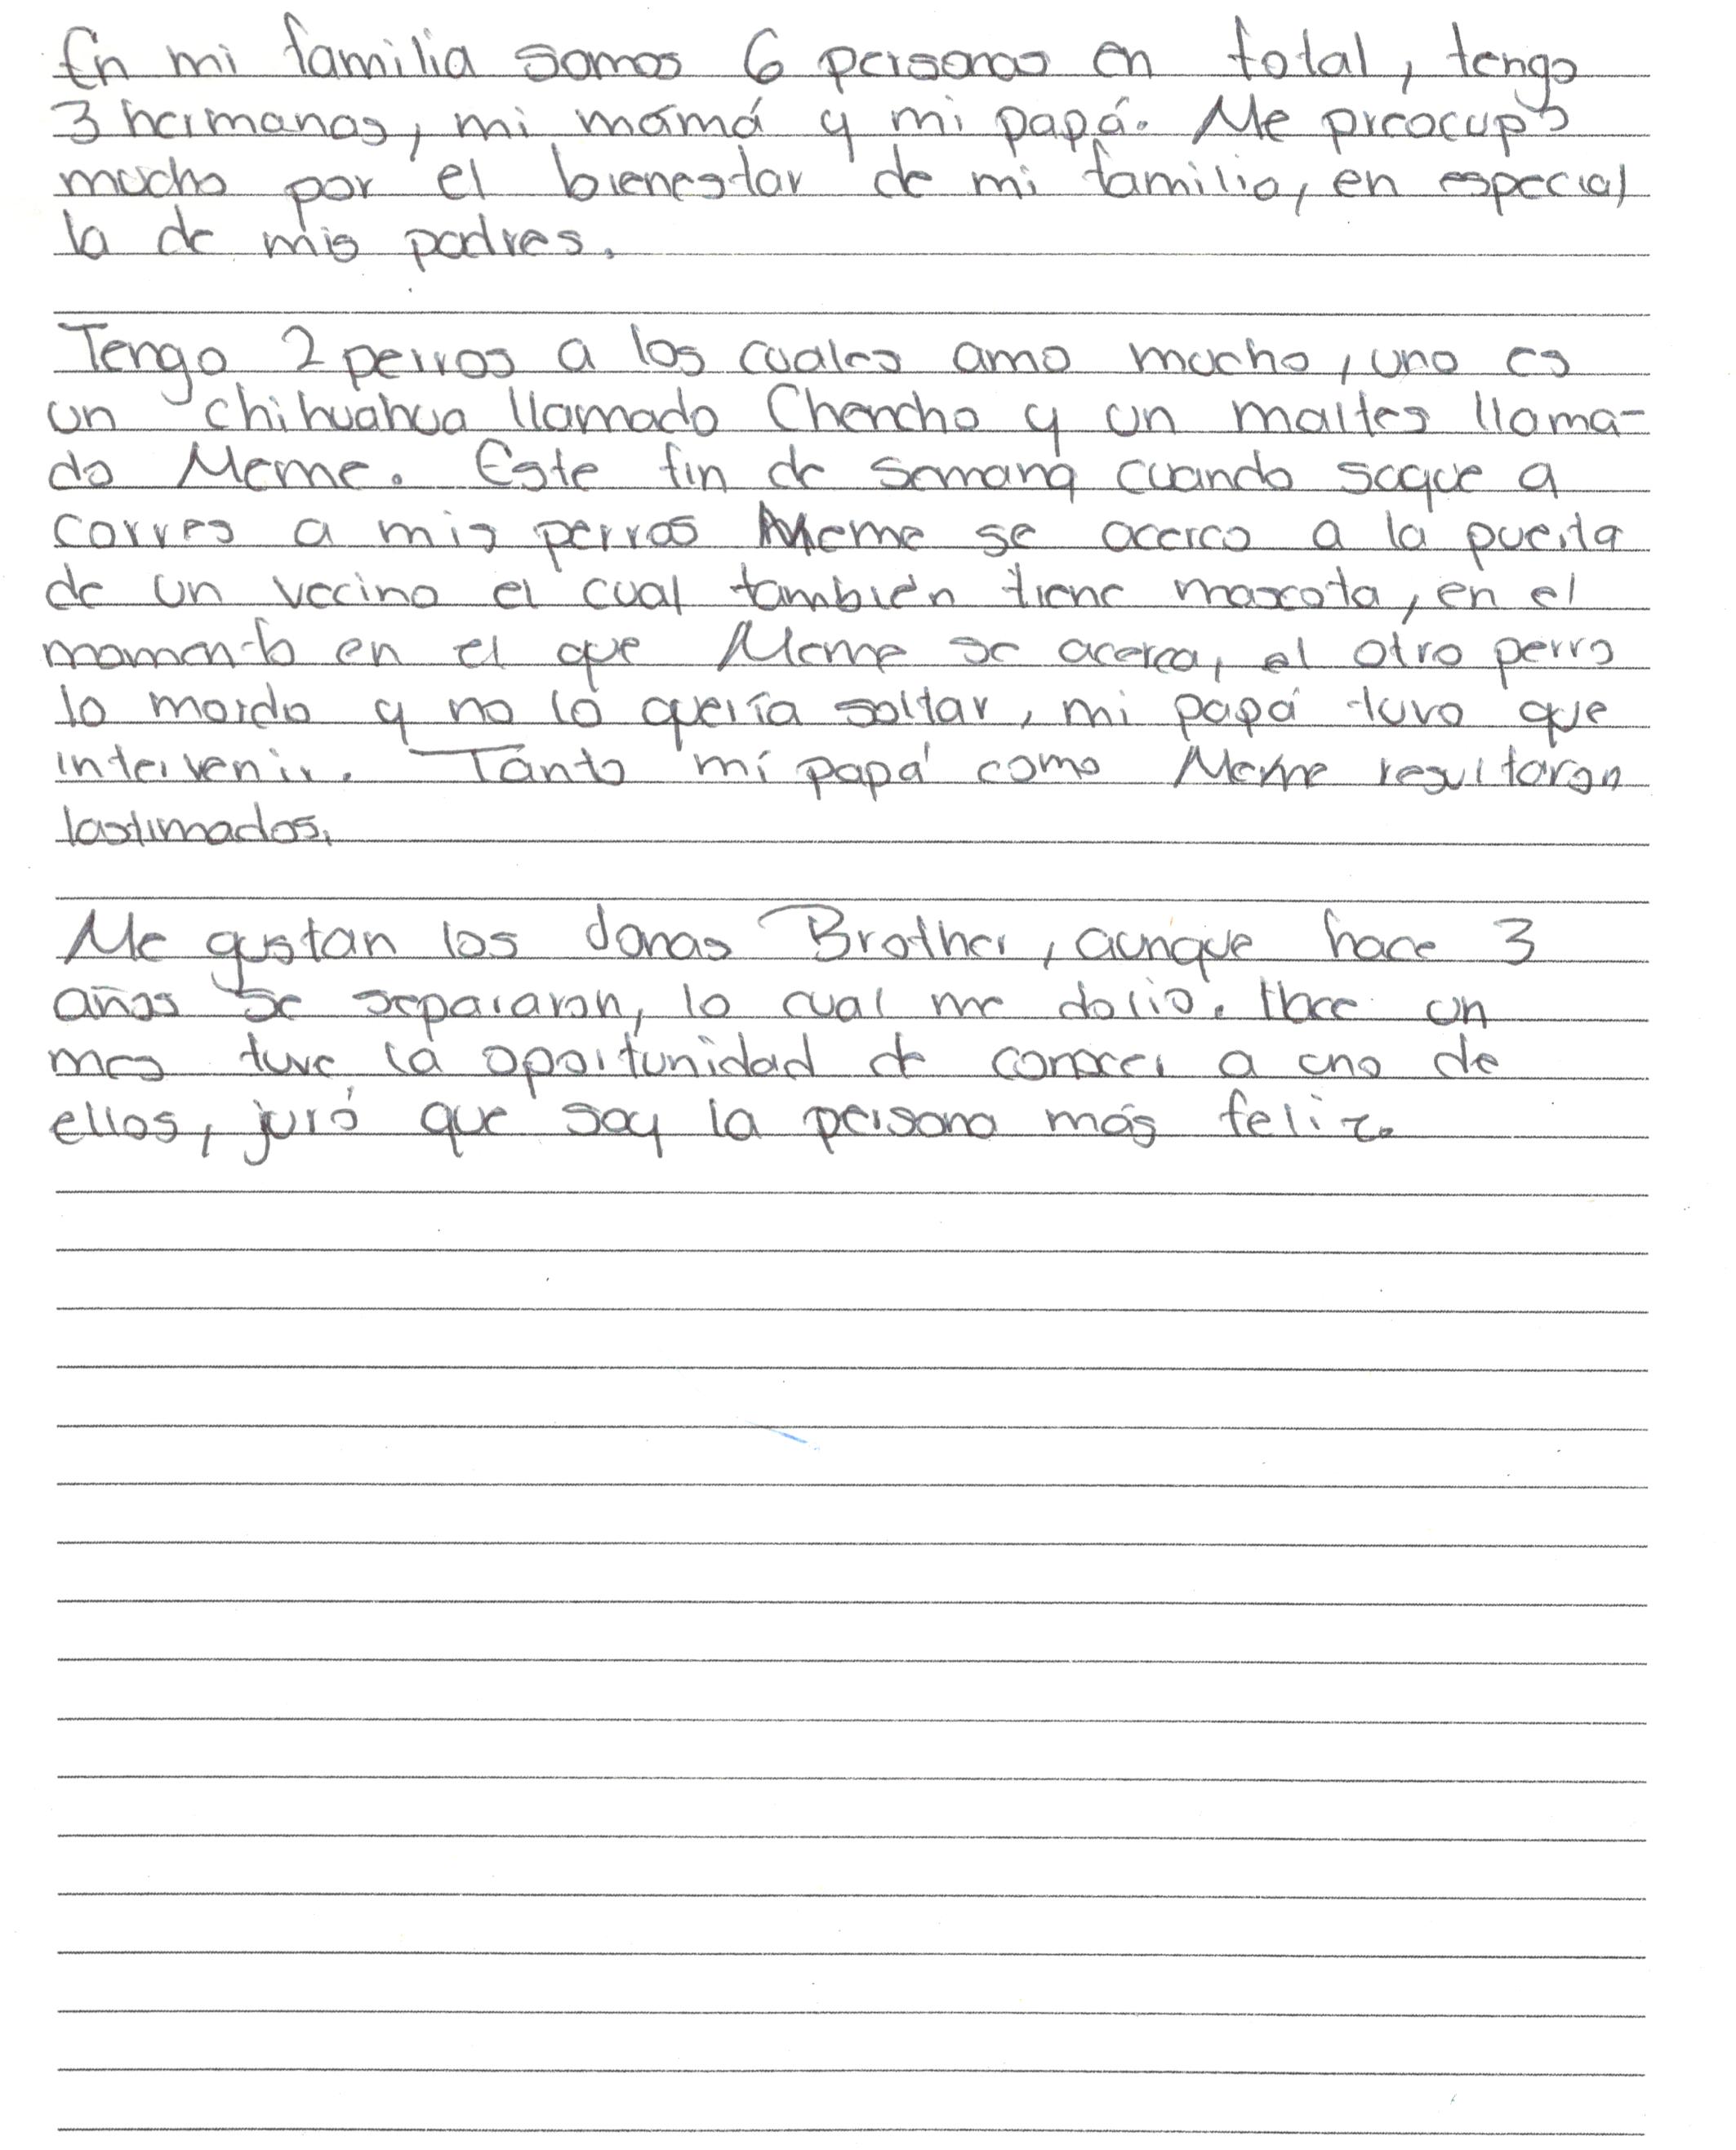 En mi familia somos 6 personas en total, tengo
3 hermanas, mi mamá y mi papá. Me preocupo
mucho por el bienestar de mi familia, en especial
la de mis padres.
Tengo 2 perros a los cuales amo mucho, uno es
un chihuahua llamado Chencho y un maltes llama-
do Meme. Este fin de semana cuando saque a
correr a mis perros Meme se acerco a la puerta
de un vecino el cual también tiene mascota, en el
momento en el que Meme se acerca, el otro perro
lo mordio y no lo quería soltar, mi papá tuvo que
intervenir. Tanto mi papá como Meme resultaron
lastimados.
Me gustan los Jonas Brother, aunque hace 3
años se separaron, lo cual me dolio. Hace un
mes tuve la oportunidad de conocer a uno de
ellos, juró que soy la persona más feliz.